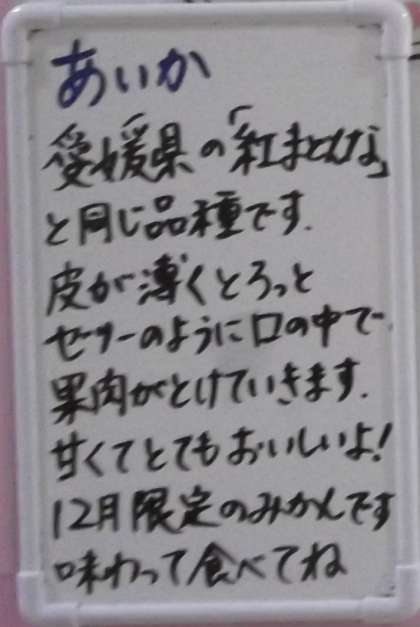 あいか
愛媛県の「紅まどんな」
と同じ品種です.
皮が薄くとろっと
ゼリーのように口の中で
果肉がとけていきます.
甘くてとてもおいしいよ!
12月限定のみかんです
味わって食べてね